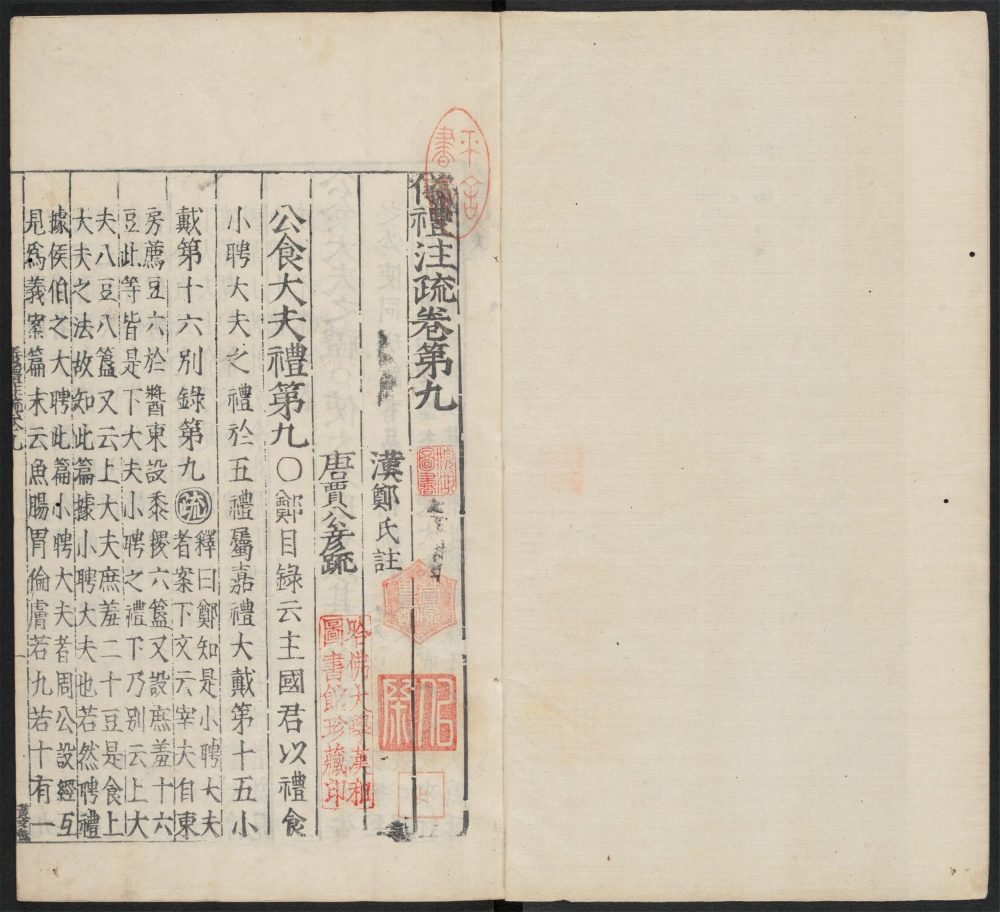 儀禮注疏卷第九
漢鄭氏註
唐賈公彦疏
公食大夫禮第九〇鄭目錄云主國君以禮食
小聘大夫之禮於五禮屬嘉禮大戴第十五小
戴第十六別錄第九疏
釋曰鄭知是小聘大夫
者案下文云宰夫自東
房薦豆六於醬東設黍稷六簋又設庶羞十六
豆此等皆是下大夫小聘之禮下乃別云上大
夫八豆八簋又云上大夫庶羞二十豆是食上
大夫之法故知此篇據小聘大夫也若然聘禮
據侯伯之大聘此篇小聘大夫者周公設經互
見爲義案篇末云魚腸胃倫膚若九若十有一
哈佛大學漢和
圖書館珍藏印